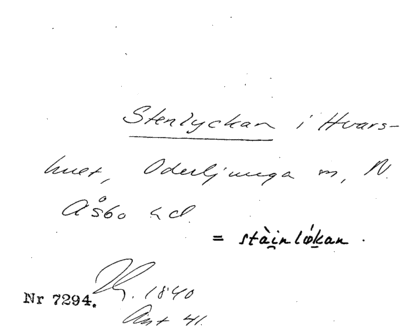 Stenlyckan i Hvars-
hult, Oderljunga m, N.
Åsbo hd.
= stàinlǿkan.
1840
Nr 7294.
Ant 41.